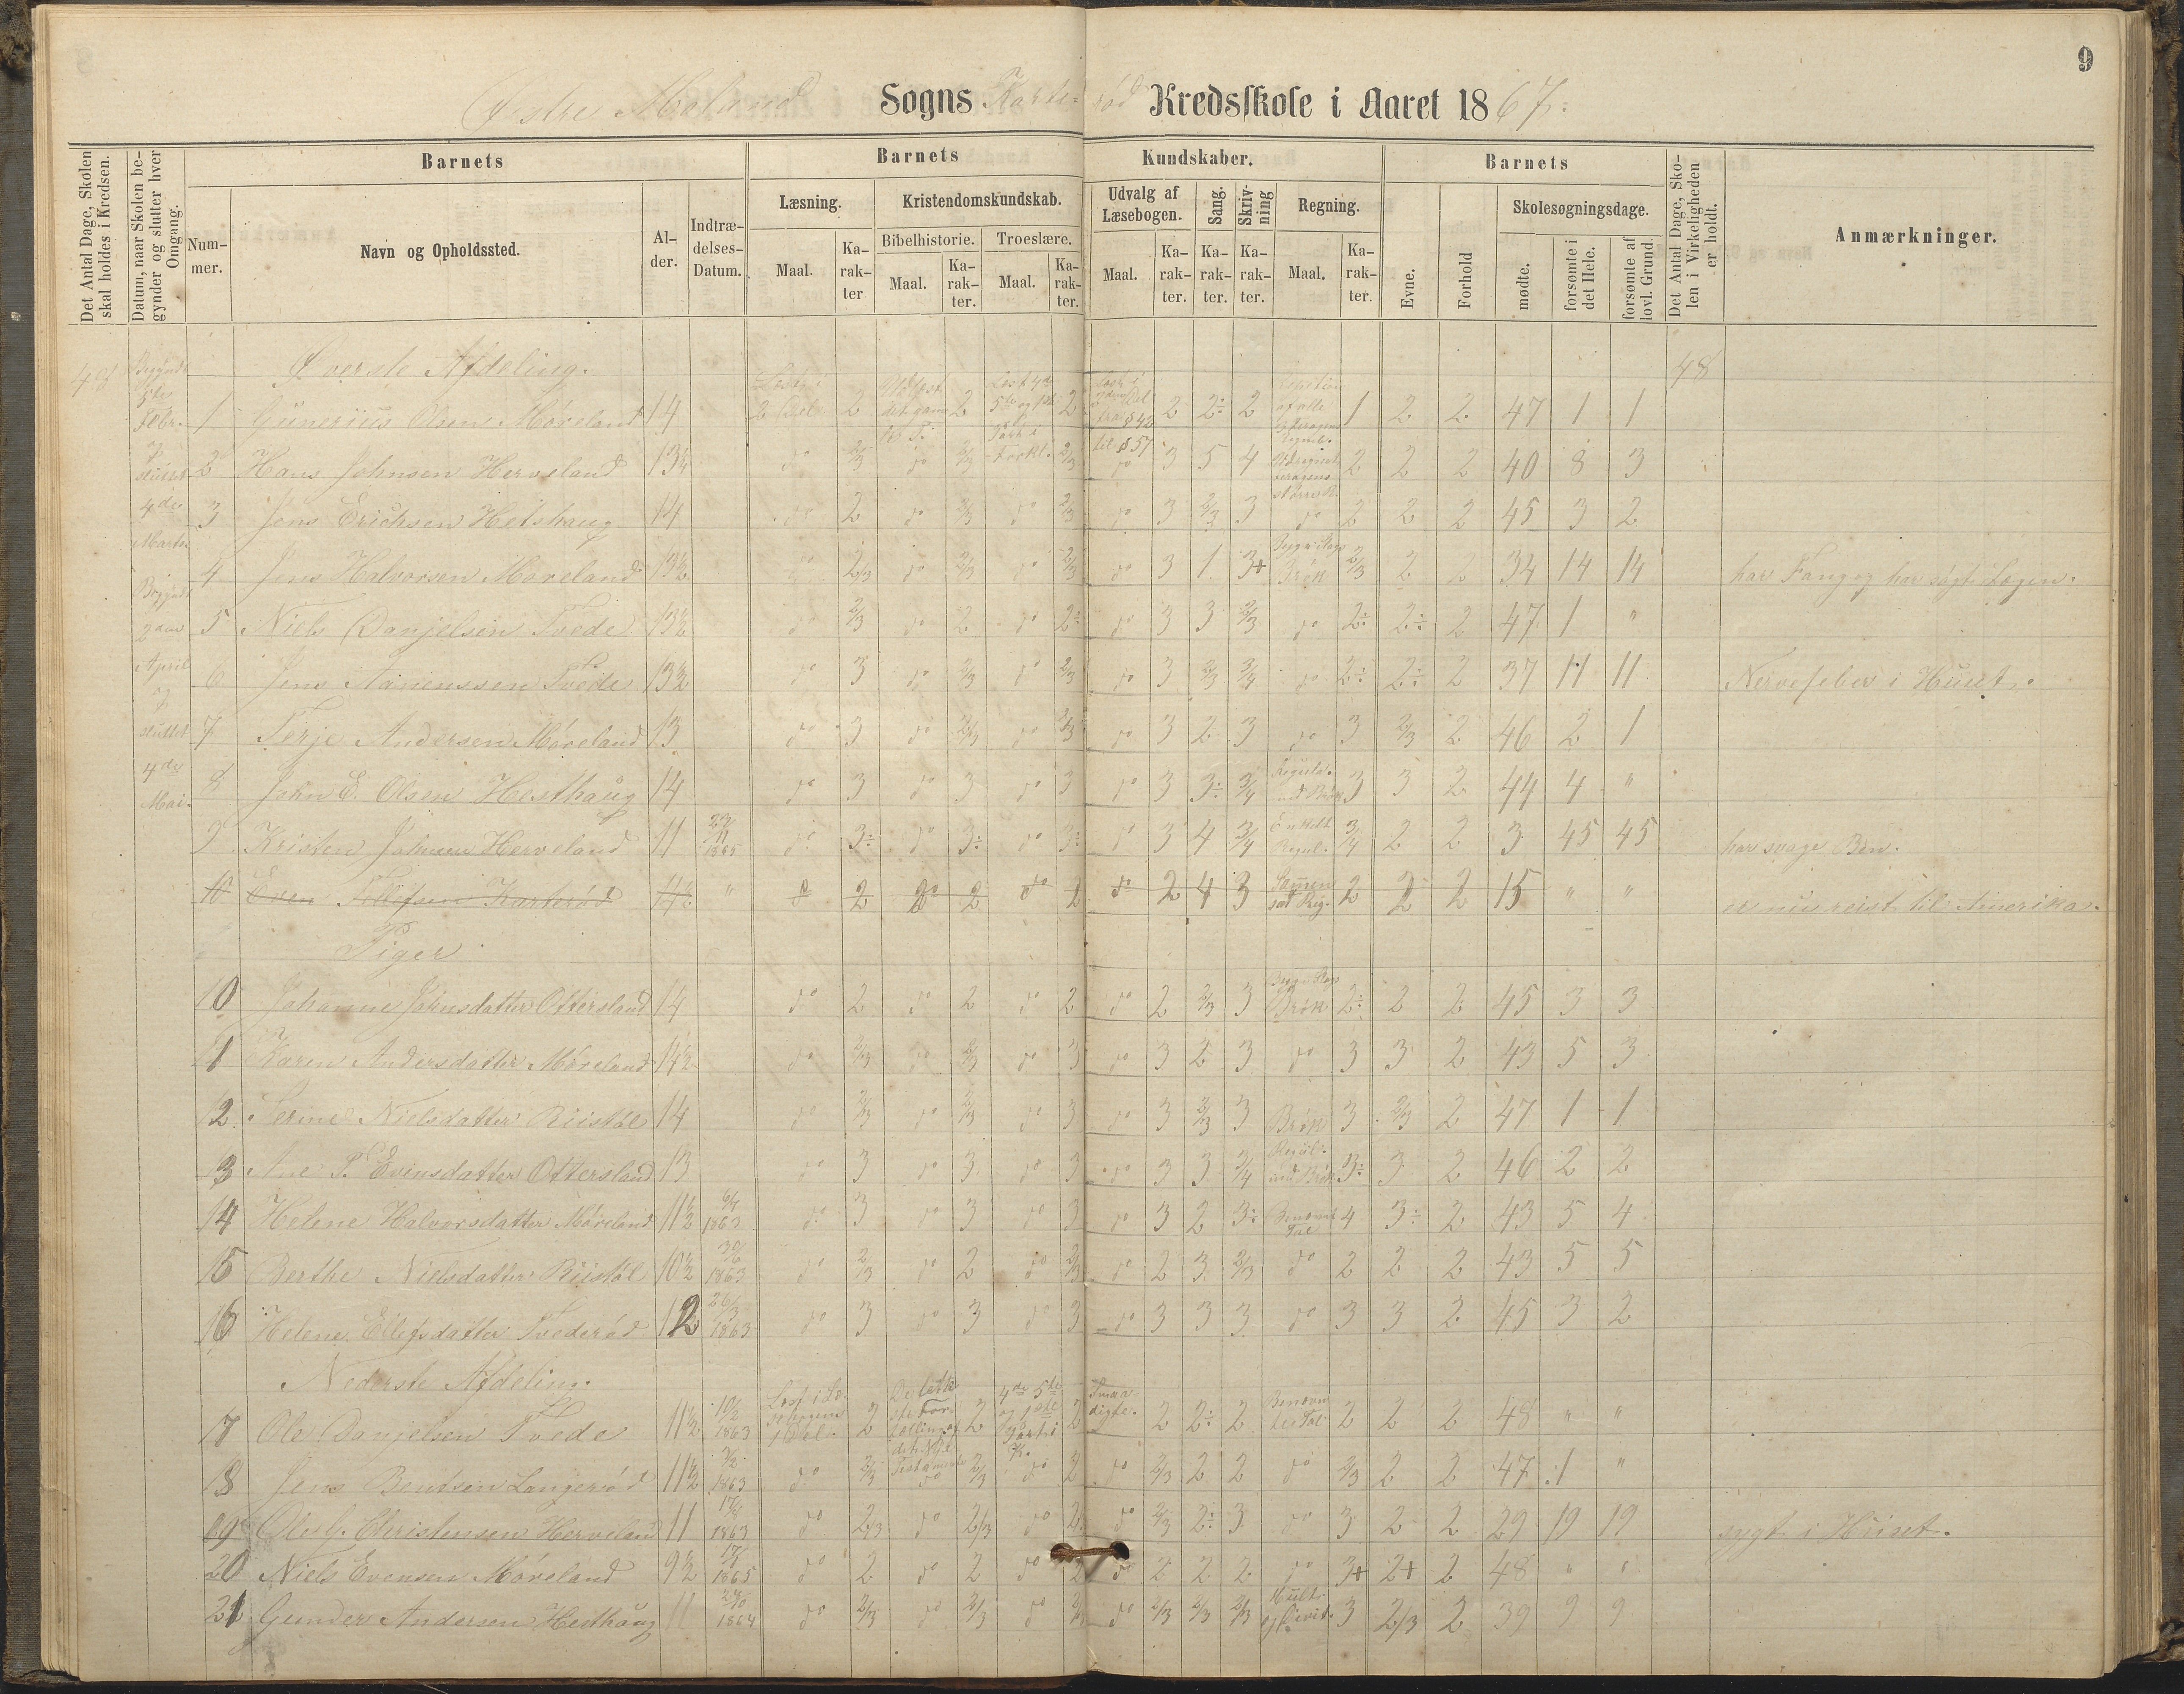 9
Østre Moland Sogns Karterød Kredsskole i Aaret 1867.
Det Antal Dage, Skolen skal holdes i Kredsen.
Datum, naar Skolen begynder og slutter hver Omgang.
Barnets
Num-mer.
Navn og Opholdssted.
Al-der.
Indtræ-delses-Datum.
Barnets Kundskaber.
Læsning.
Maal.
Ka-rak-ter
Kristendomskundskab.
Bibelhistorie.
Maal.
Ka-rak-ter.
Troeslære.
Maal.
Ka-rak-ter.
Udvalg af Læsebogen.
Maal.
Ka-rak-ter.
Sang.
Ka-rak-ter.
Skriv-ning
Ka-rak-ter.
Regning.
Maal.
Ka-rak-ter.
Barnets
Evne.
Forhold
Skolesøgningsdage.
mødte.
forsømte i det Hele.
forsømte af lovl. Grund.
Det Antal Dage, Skolen i Virkeligheden er holdt.
Anmærkninger.
48 Øverste Afdeling. 48
1 Gunerius Olsen Møreland 14 2 2 2 2 2÷ 2 1 2 2 47 1 1
2 Hans Johnsen Herveland 13½ do 2/3 do 2/3 2/3 do 3 5 4 2 2 2 40 8 3
3 Jens Erichsen Hetshaug 14 do 2 do 2/3 do 2/3 do 3 2/3 3 do 2 2 2 45 3 2
4 Jens Halvorsen Møreland 13½ do 2/3 do 2/3 do 2/3 do 3 1 3+ Brøk 2/3 2 2 34 14 14 har Fang og har søgt Lægen.
5 Niels Danjelsen Tvede 13½ do 2/3 do 2 do 2÷ do 3 3 2/3 do 2÷ 2÷ 2 47 1 "
6 Jens Aanenssen Tvede 13½ do 3 do 2/3 do 2/3 do 3 2/3 3/4 do 2÷ 2÷ 2 37 11 11 Nervefeber i Huset.
7 Terje Andersen Møreland 13 do 3 do 2/3 do 2/3 do 3 2 3 do 3 2/3 2 46 2 1
8 John E. Olsen Hesthaug 14 do 3 do 3 do 3 do 3 3÷ 3/4 3 3 2 44 4 "
9 Kristen Johnsen Herveland 11 27/11 1865 do 3÷ do 3÷ do 3÷ do 3 4 3/4 Enkelt Regul. 3/4 2 2 3 45 45 har svage Ben.
10 Even Ellefsen Karterød " 2 do 2 do 2 do 2 4 3 2 2 2 15 " " er nu reist til Amerika.
Piger
10 Johanne Johnsdatter Ottersland 14 do 2 do 2 do 2 do 2 2/3 3 Brøk 2÷ 2 2 45 3 3
11 Karen Andersdatter Møreland 14½ do 2/3 do 2/3 do 3 do 3 2 3 do 3 3 2 43 5 3
12 Terine Nielsdatter Riistøl 14 do 2/3 do 2/3 do 3 do 3 2/3 3 Brøk 3 2/3 2 47 1 1
13 Ane P. Evensdatter Ottersland 13 do 3 do 3 do 3 do 3 3 3/4 Regul. med Brøk 3÷ 3 2 46 2 2
14 Helene Halvorsdatter Møreland 11½ 1863 do 3 do 3 do 3 do 3 2 3÷ Benævnt Tal 4 3÷ 2 43 5 4
15 Berthe Nielsdatter Riistøl 10½ 30/6 1863 do 2/3 do 2 do 2/3 do 2 3 2/3 do 2 2 2 43 5 5
16 Helene Ellefsdatter Tvederød 12 1863 do 3 do 3 do 3 do 3 3 3 do 3 3 2 45 3 2
Nederste Afdeling.
17 Ole Danjelsen Tvede 11½ 10/2 1863 2 2 2 2 2÷ 2 2 2 2 48 " "
18 Jens Bentsen Langerød 11½ 1863 do 2/3 do 2/3 do 2 do 2/3 2 2 do 2/3 2 2 47 1 "
19 Ole G. Christensen Herveland 11 1863 do 2/3 do 2/3 do 2 do 2/3 2÷ 3 do 3 2 2 29 19 19 sygt i Huset.
20 Niels Evensen Møreland 9½ 1865 do 2 do 2 do 2 do 2 2 2 do 3+ 2+ 2 48 " "
21 Gunder Andersen Hesthaug 11 1864 do 2/3 do 2/3 do 2/3 do 2/3 2/3 2/3 Mult. og Divid. 3 2/3 2 39 9 9